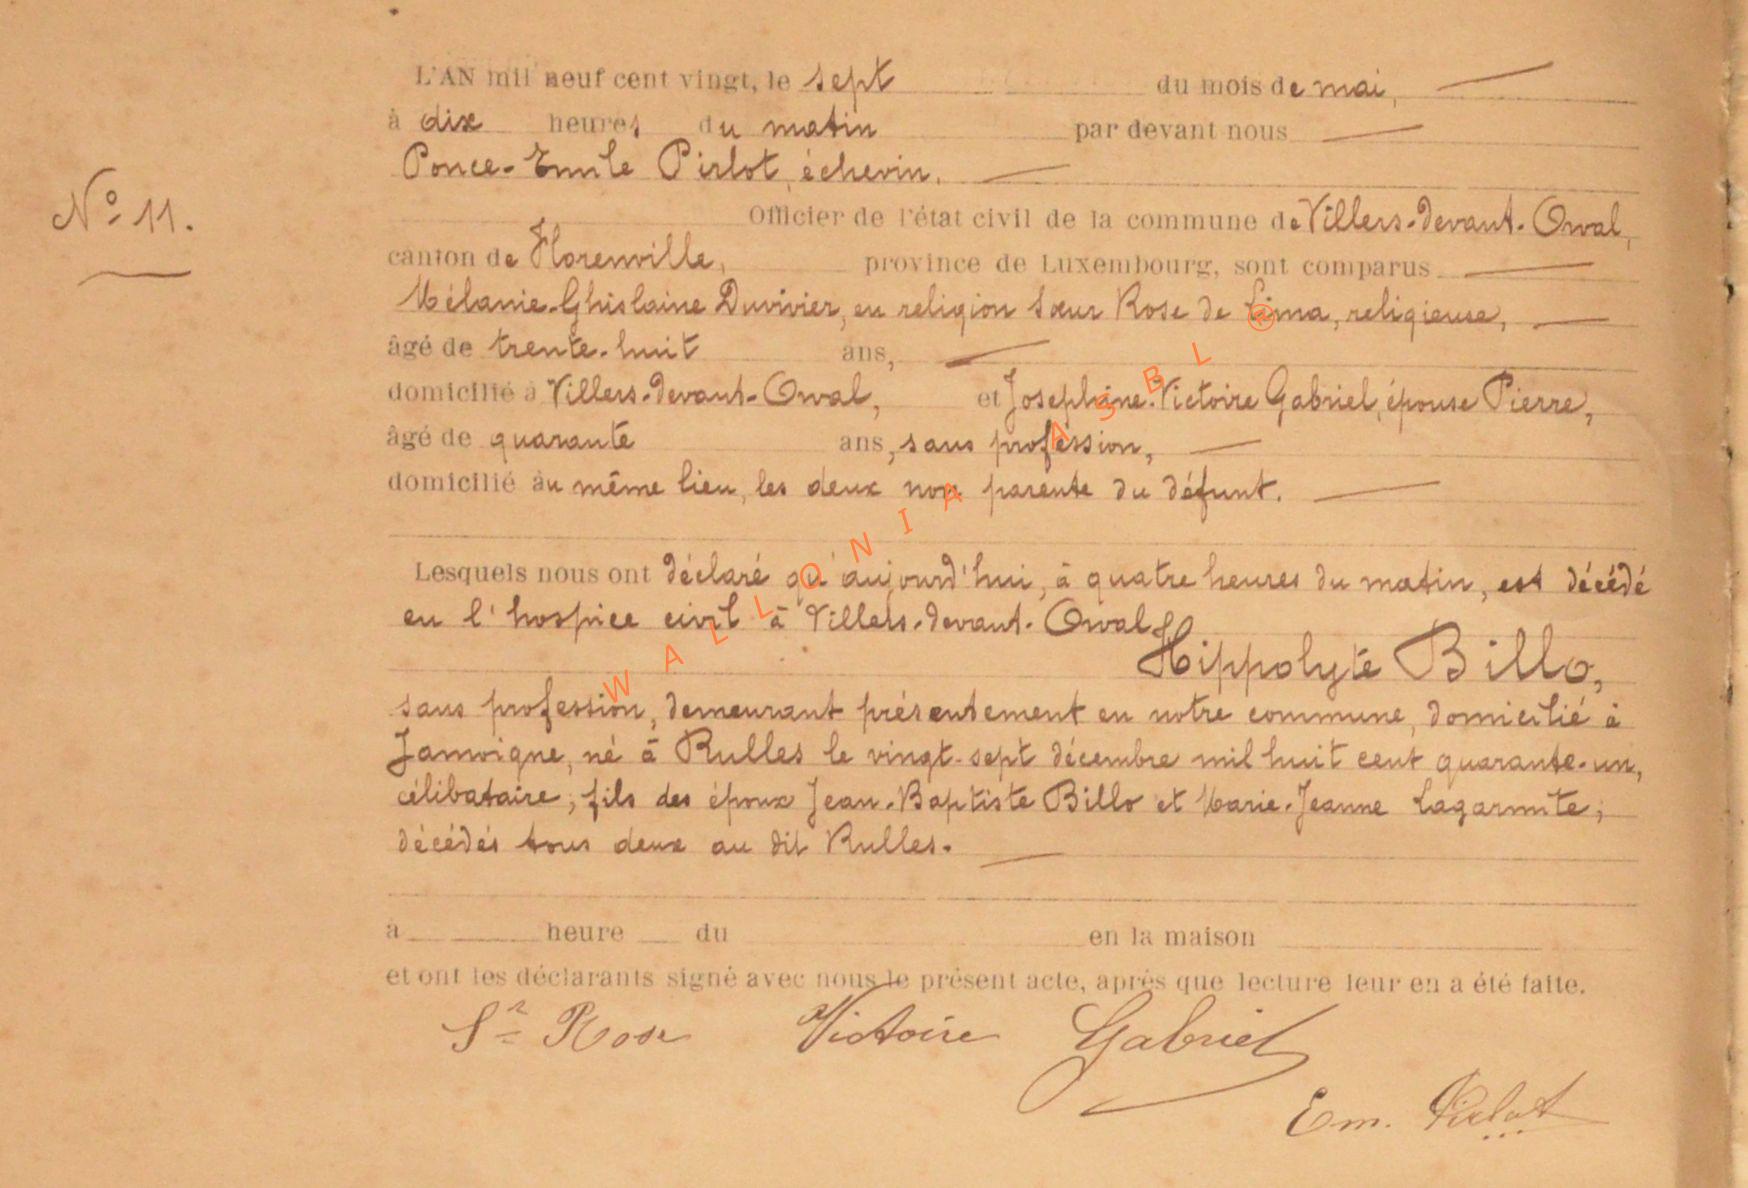 L'AN mil neuf cent vingt, le sept du mois de mai,
à dix heures du matin par devant nous
Ponce-Emile Pirlot, échevin.
N° 11.
Officier de l'état civil de la commune de Villers-devant-Orval,
canton de Florenville, province de Luxembourg, sont comparus
Mélanie-Ghislaine Duvivier, en religion Sœur Rose de Lima, religieuse,
âgé de trente-huit ans,
domicilié à Villers-devant-Orval, et Josephine-Victoire Gabriel, épouse Pierre,
âgé de quarante ans, sans profession,
domicilié au même lieu, les deux non parente du défunt.
Lesquels nous ont déclaré qu'aujourd'hui, à quatre heures du matin, est décédé
en l'hospice civil à Villers-devant-Orval
Hippolyte Billo,
sans profession, demeurant présentement en notre commune, domicilié à
Jamoigne, né à Rulles le vingt-sept décembre mil huit cent quarante-un,
célibataire, fils des époux Jean-Baptiste Billo et Marie-Jeanne Lagarmite,
décédés tous deux au dit Rulles.
à heure du en la maison
et ont les déclarants signé avec nous le présent acte, après que lecture leur en a été faite.
Sr Rose Victoire Gabriel
Em. Pirlot
WALLONIA ASBL ®